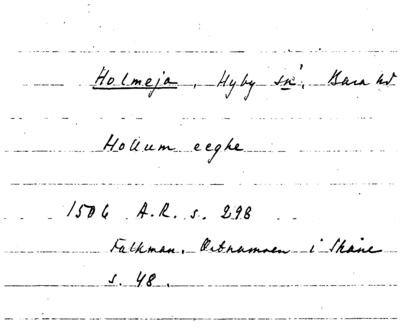 Holmeja, Hyby sn, Bara hd
Hollum eeghe
1506 A.R. s. 298
Falkman, Ortnamnen i Skåne
s. 48.